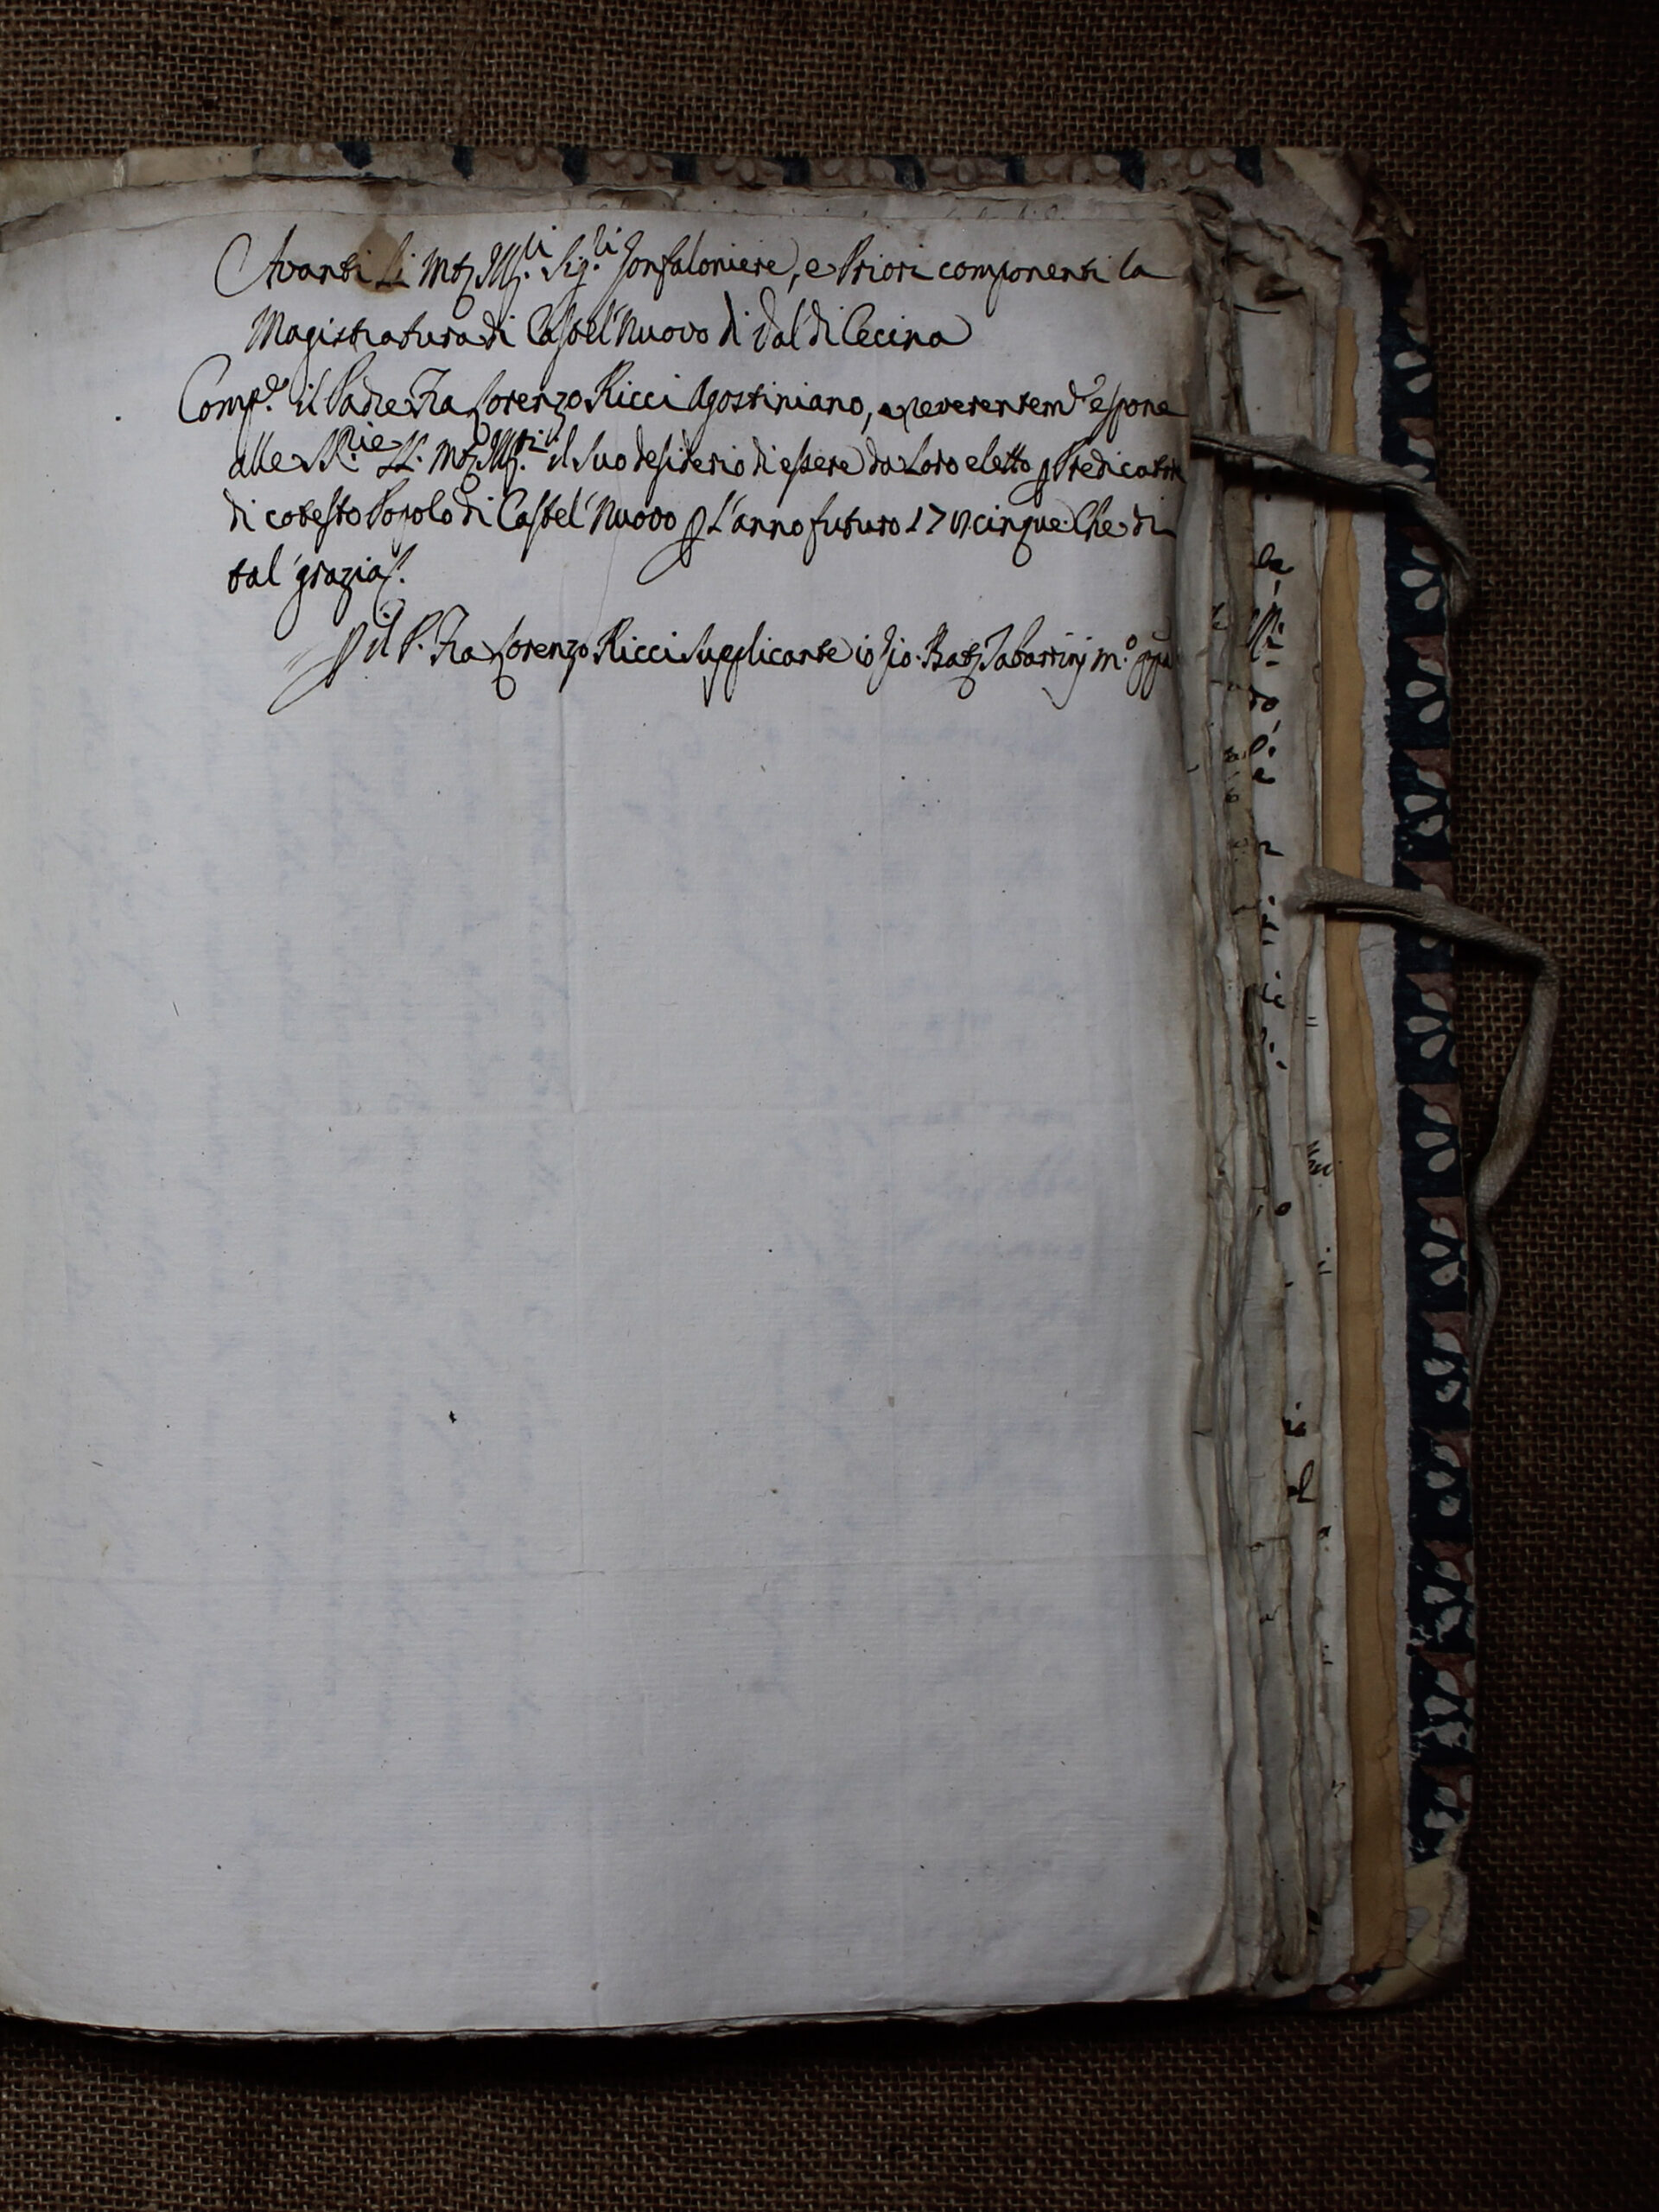 Avanti Li Mtz Ill:li Sig:li Gonfaloniere, e Priori componenti la
Magistratura di Castel'Nuovo di Val'di Cecina
Comp:e il Padre Fra Lorenzo Ricci Agostiniano, e reverentem:e espone
alle SS:rie LL: Mtz Ill:ri il Suo desiderio di essere da Loro eletto p Predicatore
di cotesto Popolo di Castel'Nuovo p L'anno futuro cinque Che di
tal'grazia.
p il P. Fra Lorenzo Ricci Supplicante io Gio: Batz Tabarrinj m:o ppa